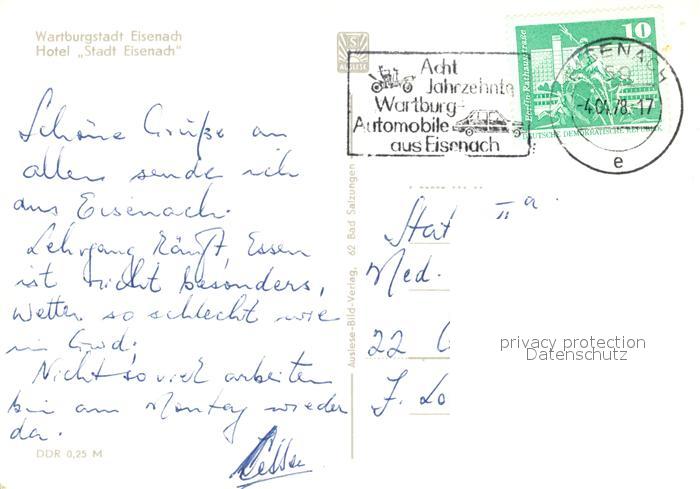 Wartburgstadt Eisenach
Hotel „Stadt Eisenach"
Schöne Grüße an
allen sende ich
aus Eisenach.
Lehrgang läuft, Essen
ist nicht besonders,
Wetter so schlecht wie
in Gwd.
Nicht so viel arbeiten
bin am Montag wieder
da.
DDR 0,25 M
AUSLESE
Auslese-Bild-Verlag, 62 Bad Salzungen
Acht
Jahrzehnte
Wartburg-
Automobile
aus Eisenach
10
Berlin-Rathausstraße
DEUTSCHE DEMOKRATISCHE REPUBLIK
EISENACH
59
-4.04.78.-17
e
Stat
II a.
Med.
22 G
F. Lo
privacy protection
Datenschutz